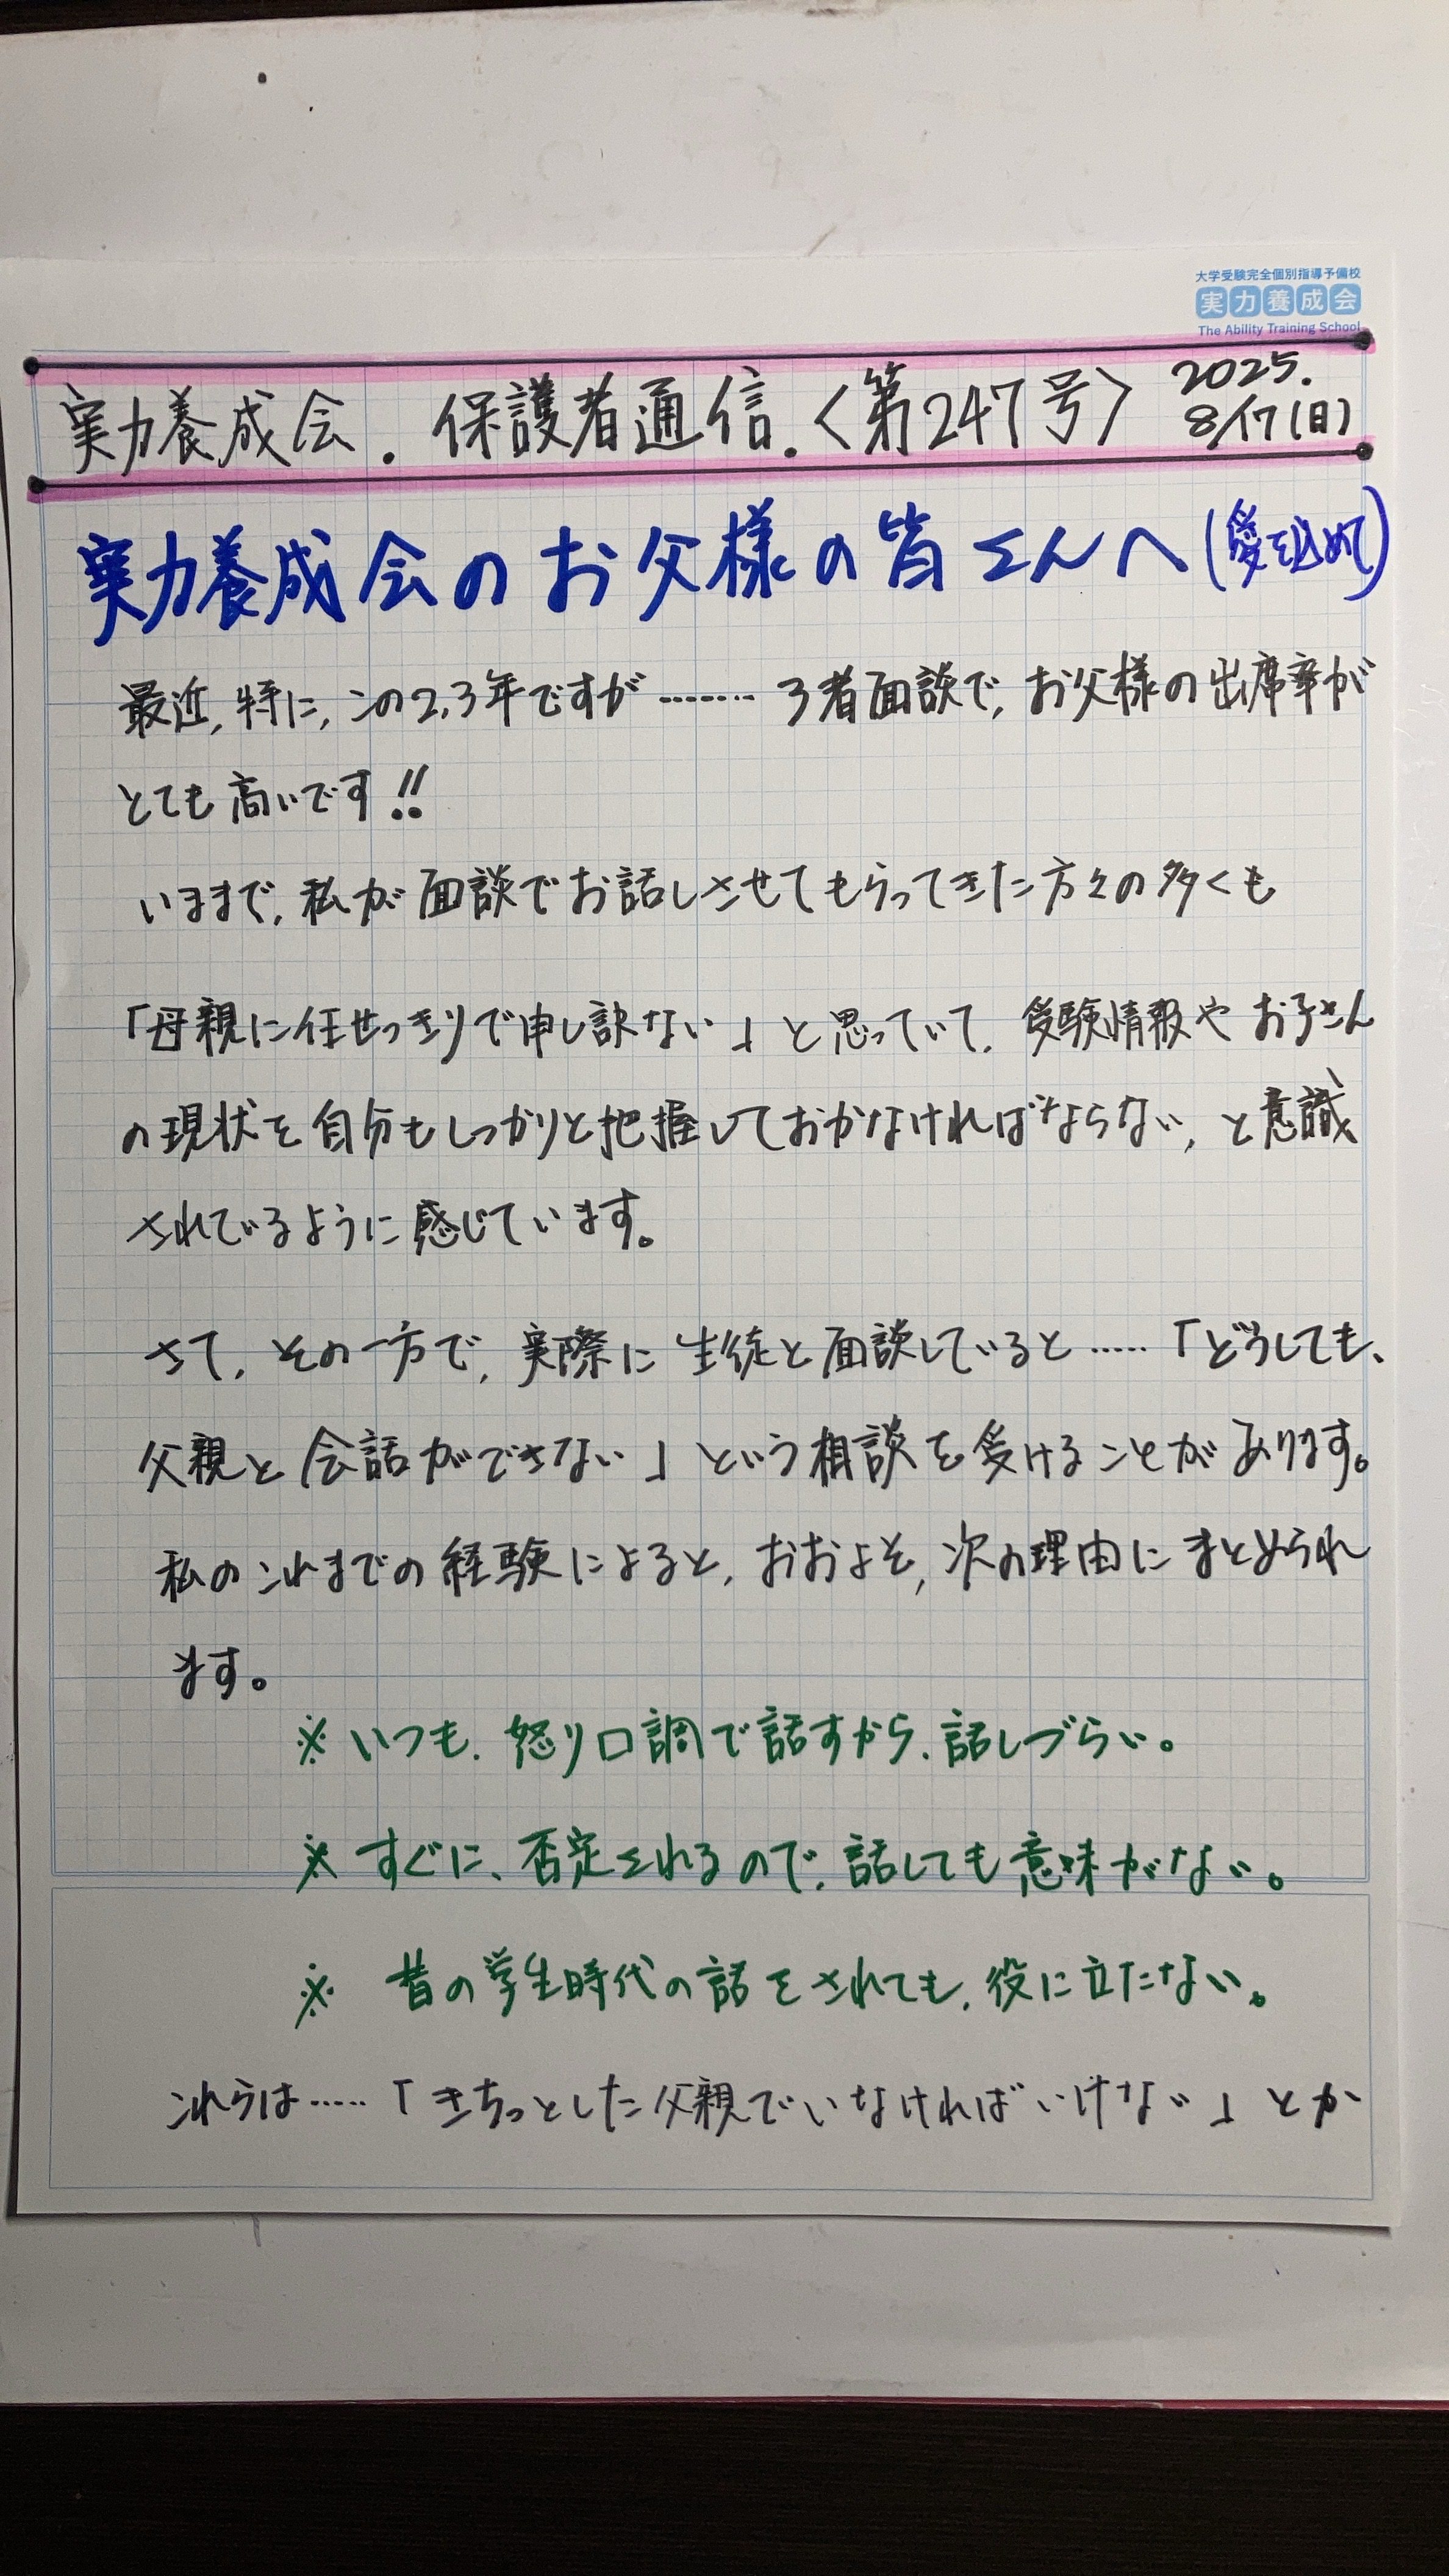 大学受験完全個別指導予備校
実力養成会
The Ability Training School
実力養成会.保護者通信.〈第247号〉 2025.
8/17(日)
実力養成会のお父様の皆さんへ(愛を込めて)
最近,特に,この2,3年ですが……… 3者面談で,お父様の出席率が
とても高いです!!
いままで,私が面談でお話しさせてもらってきた方々の多くも
「母親に任せっきりで申し訳ない」と思っていて,受験情報やお子さん
の現状を自分もしっかりと把握しておかなければならない,と意識
されているように感じています。
さて,その一方で,実際に生徒と面談していると……「どうしても、
父親と会話ができない」という相談を受けることがあります。
私のこれまでの経験によると,おおよそ,次の理由にまとめられ
ます。
※いつも.怒り口調で話すから、話しづらい。
※すぐに、否定されるので、話しても意味がない。
※ 昔の学生時代の話をされても,役に立たない。
これらは……「きちっとした父親でいなければいけない」とか